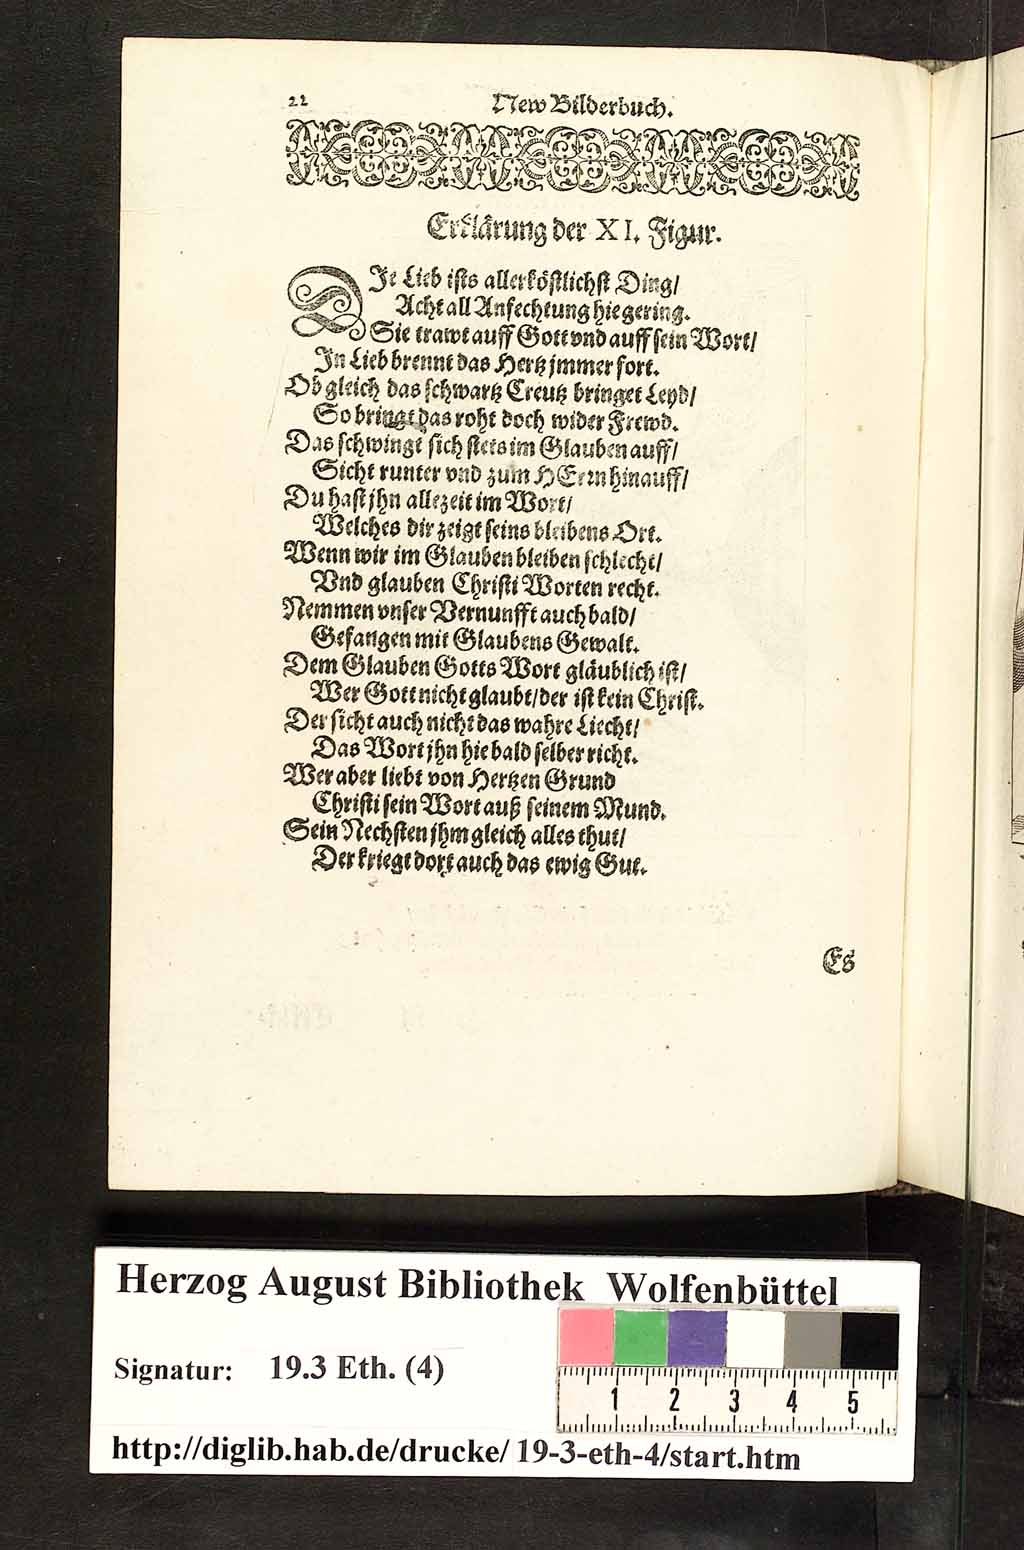 22
New Bilderbuch.
Erklärung der XI. Figur.
DJe Lieb ists allerköstlichst Ding/
Acht all Anfechtung hie gering.
Sie trawt auff Gott vnd auff sein Wort/
Jn Lieb brennt das Hertz jmmer fort.
Ob gleich das schwartz Creutz bringet Leyd/
So bringt das roht doch wider Frewd.
Das schwingt sich stets im Glauben auff/
Sicht runter vnd zum HErrn hinauff/
Du hast jhn allezeit im Wort/
Welches dir zeigt seins bleibens Ort.
Wenn wir im Glauben bleiben schlecht/
Vnd glauben Christi Worten recht.
Nemmen vnser Vernunfft auch bald/
Gefangen mit Glaubens Gewalt.
Dem Glauben Gotts Wort gläublich ist/
Wer Gott nicht glaubt/der ist kein Christ.
Der sicht auch nicht das wahre Liecht/
Das Wort jhn hie bald selber richt.
Wer aber liebt von Hertzen Grund
Christi sein Wort auß seinem Mund.
Sein Nechsten jhm gleich alles thut/
Der kriegt dort auch das ewig Gut.
Es
Herzog August Bibliothek Wolfenbüttel
Signatur: 19.3 Eth. (4)
1 2 3 4 5
http://diglib.hab.de/drucke/ 19-3-eth-4/start.htm